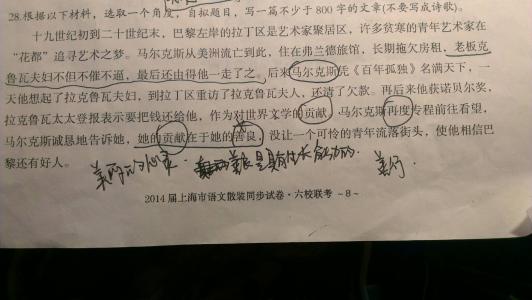 28.根据以下材料，选取一个角度，自拟题目，写一篇不少于 800 字的文章(不要写成诗歌)。
十九世纪初到二十世纪末，巴黎左岸的拉丁区是艺术家聚居区，许多贫寒的青年艺术家在
“花都”追寻艺术之梦。马尔克斯从美洲流亡到此，住在弗兰德旅馆，长期拖欠房租，老板克
鲁瓦夫妇不但不催不逼，最后还由得他一走了之。后来马尔克斯凭《百年孤独》名满天下，一
天他想起了拉克鲁瓦夫妇，到拉丁区重访了拉克鲁瓦夫人，还清了欠款。再后来他获诺贝尔奖，
拉克鲁瓦太太登报表示要把钱还给他，作为对世界文学的贡献。马尔克斯再度专程前往看望，
马尔克斯诚恳地告诉她，她的贡献在于她的善良，没让一个可怜的青年流落街头，使他相信巴
黎还有好人。
美丽的心灵
善良是具有生长能力的
善行
2014 届上海市语文散装同步试卷·六校联考 ~8~